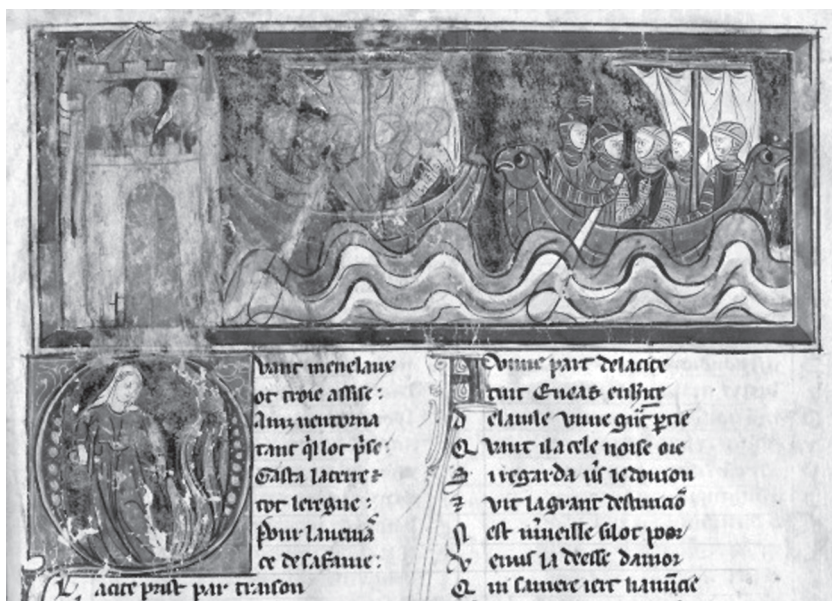 Quant menelaux
ot troie assise
Ainz nentorna
tant ql lot pse:
Gasta laterre ⁊
tot leregne:
Pour lauenia̅
ce desafame:
L acite prist par traison
A dune part delacite
tint Eneas enherite
d elauile vune gnt ptie
Q uant ila cele noise oie
S i regarda us le donion
⁊ vit lagrant destrucio̅
N est mueille silot poor
V enus la deesse damor
Q ui samere iert